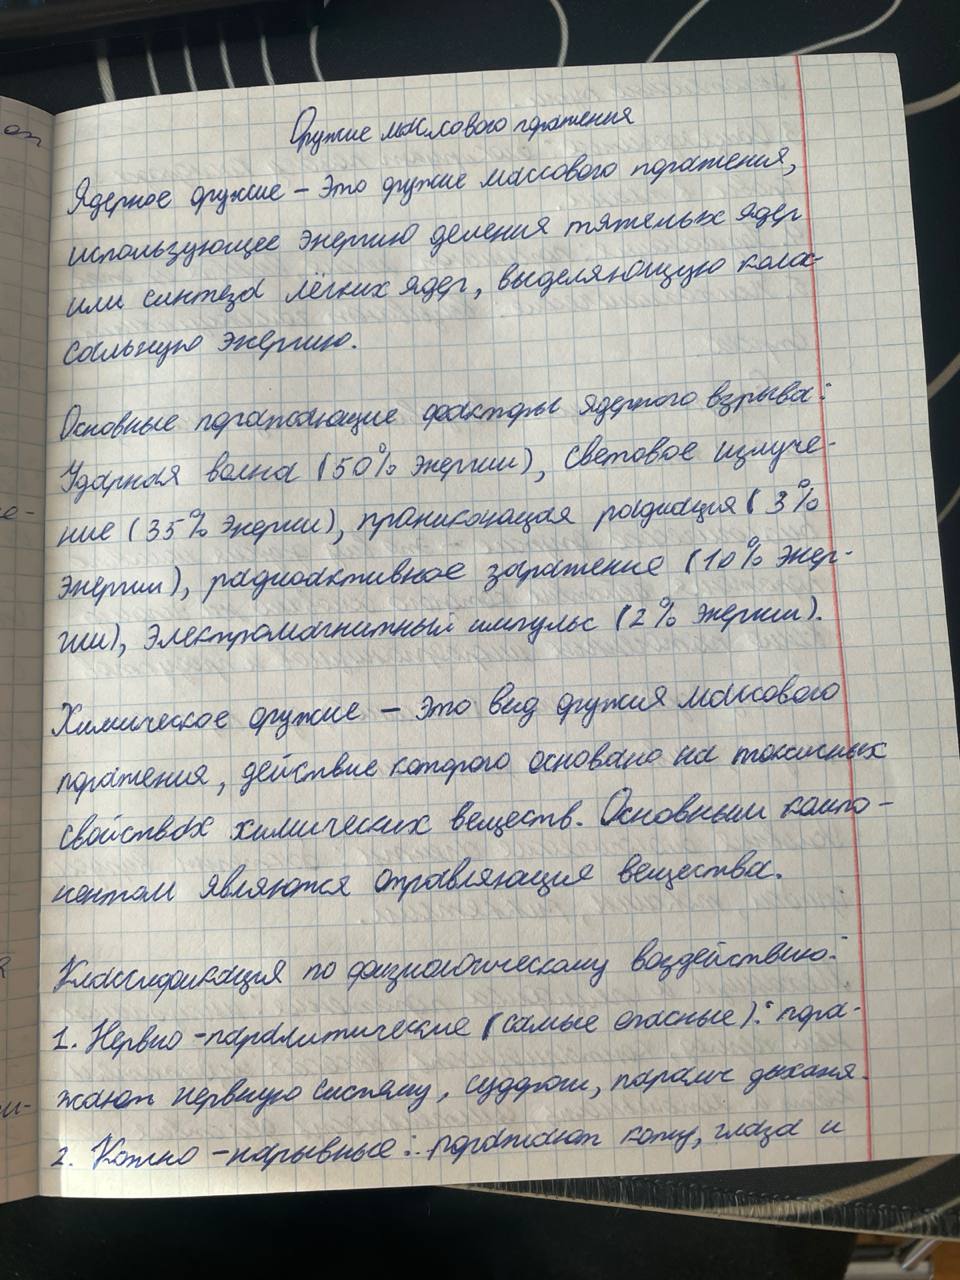 Оружие массового поражения
Ядерное оружие – это оружие массового поражения,
использующее энергию деления тяжелых ядер
или синтеза лёгких ядер, выделяющую кола-
сальную энергию.
Основные поражающие факторы ядерного взрыва:
Ударная волна (50% энергии), световое излуче-
ние (35% энергии), проникающая радиация (3%
энергии), радиоактивное заражение (10% энер-
гии), электромагнитный импульс (2% энергии).
Химическое оружие – это вид оружия массового
поражения, действие которого основано на токсичных
свойствах химических веществ. Основным компо-
нентом являются отравляющие вещества.
Классификация по физиологическому воздействию:
1. Нервно-паралитические (самые опасные): пора-
жают нервную систему, судороги, паралич дыхания.
2. Кожно-нарывные: поражают кожу, глаза и